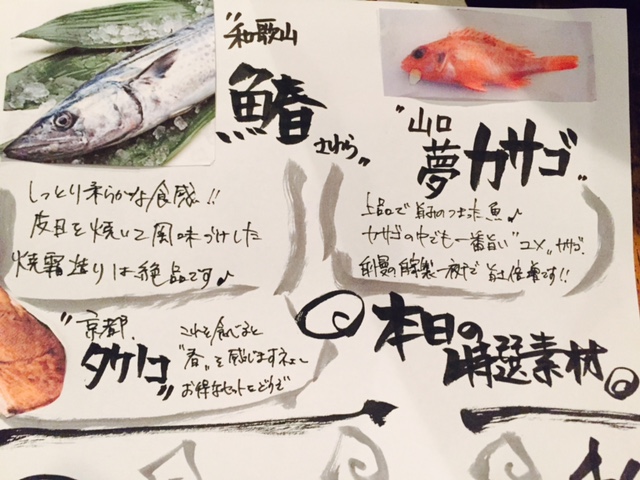 "和歌山
鰆
さわら"
しっとり柔らかな食感!!
皮目を焼いて風味づけした
焼霜造りは絶品です♪
"山口
夢カサゴ"
上品で旨みのつまった魚♪
カサゴの中でも一番旨い"ユメ"カサゴ。
自慢の自家製一夜干で旨さ倍増です!!
"京都、
タケノコ"
これを食べると
"春"を感じますネェ〜
お得なセットにどうぞ
本日の
特選素材